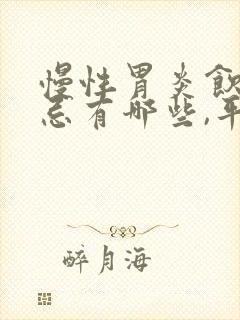 慢性胃炎飲
忌有哪些,平
醉月海